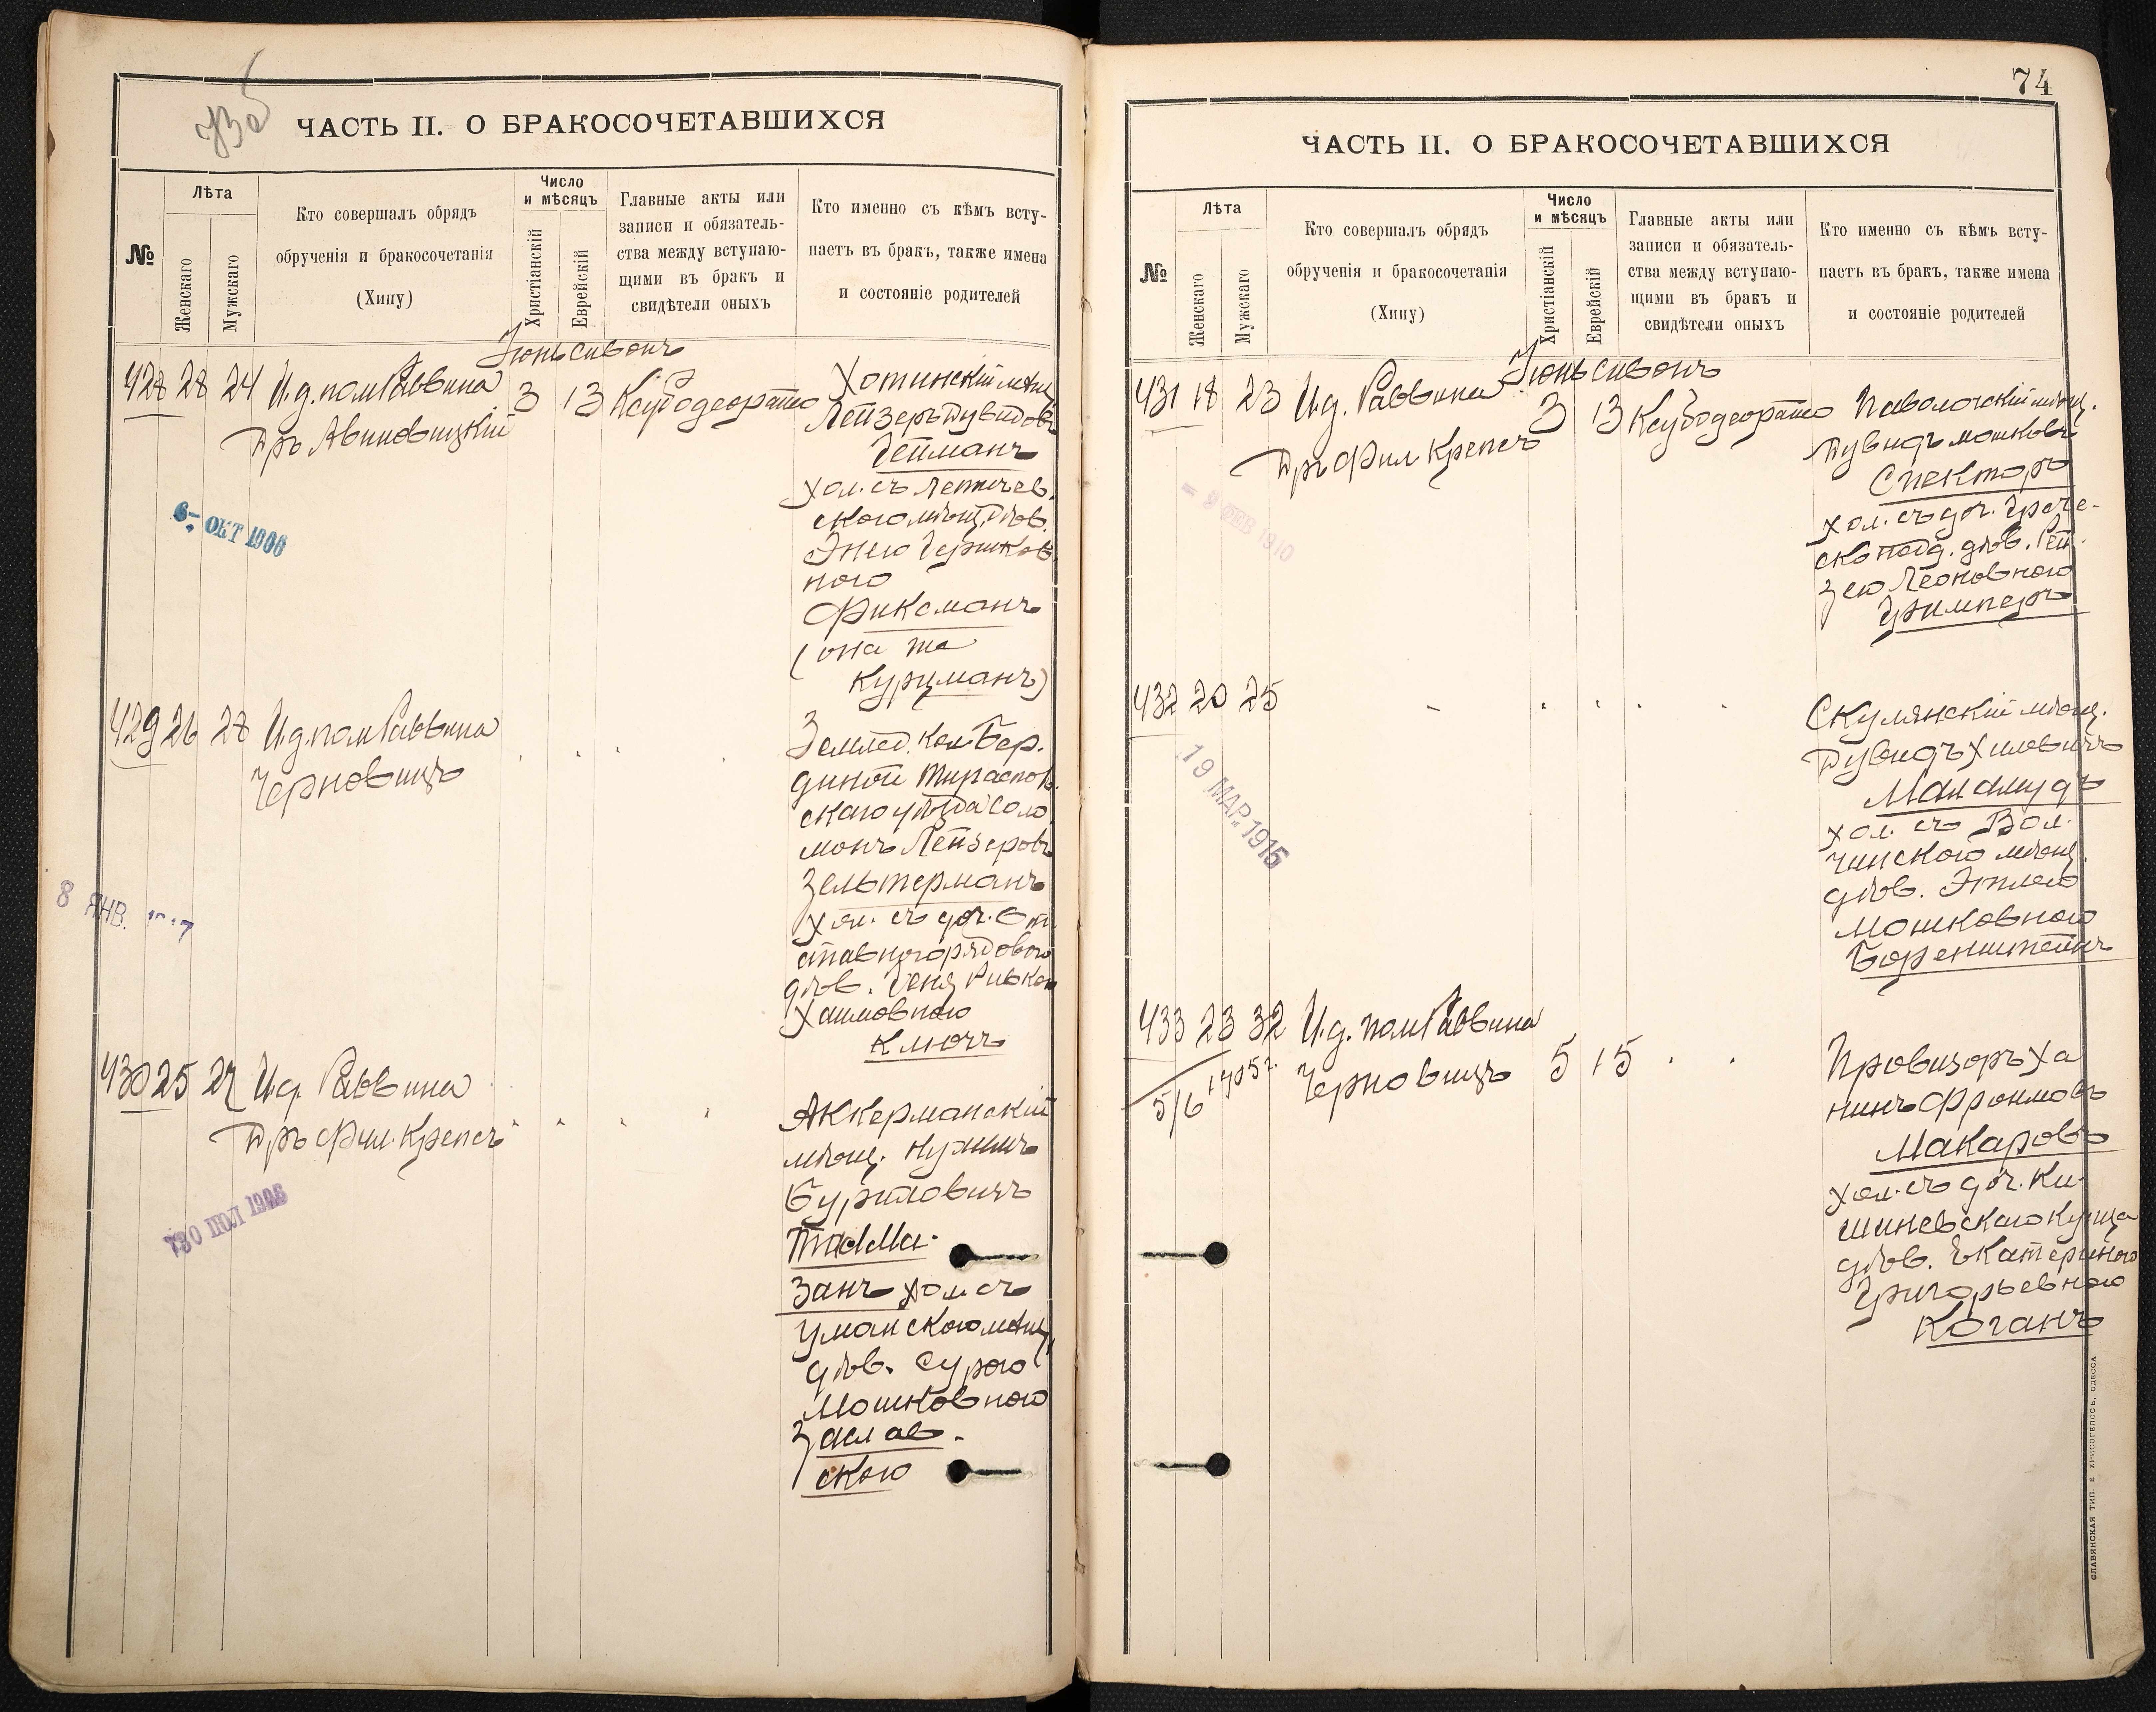 ЧАСТЬ II. О БРАКОСОЧЕТАВШИХСЯ
№
Лѣта
Женскаго
Мужскаго
Кто совершалъ обрядъ
обрученія и бракосочетанія
(Хипу)
Число
и мѣсяцъ
Христіанскій
Еврейскій
Главные акты или
записи и обязатель-
ства между вступаю-
щими въ бракъ и
свидѣтели оныхъ
Кто именно съ кѣмъ всту-
паетъ въ бракъ, также имена
и состояніе родителей
Іюнь сивонъ
428 28 24 И.д. пом Раввина
Дръ Авиновицкій
3 13
Хотинскій мѣщ.
Лейзеръ Дувидовъ
Гейманъ
хол. съ Летичев.
скою мѣщ. дѣв.
Энею Гершков
ною
Фиксманъ
(она же
Курцманъ)
6- ОКТ 1906
429 26 28 И.д. пом Раввина
Черновицъ
Землед. кол Бер.
диной Тираспол.
скаго уѣзда Соло
монъ Лейзеровъ
Зельтерманъ
хол. съ доч. От
ставного рядового
дѣв. Геня Ривкою
Хаимовною
Ключъ
8 ЯНВ.
430 25 27 И.д. Раввина
Дръ Фил. Крепсъ
Аккерманскій
мѣщ.
Талма.
занъ хол съ
Уманскою мѣщ.
дѣв. Сурою
Мошковною
Заслав.
скою
30 ІЮЛ 1906
74
ЧАСТЬ II. О БРАКОСОЧЕТАВШИХСЯ
№
Лѣта
Женскаго
Мужскаго
Кто совершалъ обрядъ
обрученія и бракосочетанія
(Хипу)
Число
и мѣсяцъ
Христіанскій
Еврейскій
Главные акты или
записи и обязатель-
ства между вступаю-
щими въ бракъ и
свидѣтели оныхъ
Кто именно съ кѣмъ всту-
паетъ въ бракъ, также имена
и состояніе родителей
Іюнь сивонъ
431 18 23 И.д. Раввина
Дръ Фил Крепсъ
3 13
Паволочскій мѣщ.
Дувидъ Мошковъ
Спекторъ
хол. съ доч. Грече-
ско подд. дѣв. Рей.
зею Леоновною
Гримперъ
ФЕВ 1910
432 20 25
Скулянскій мѣщ.
Дувидъ Хиловичъ
Маламудъ
хол. съ Вол.
чинскою мѣщ.
дѣв. Этлею
Мошковною
Боренштейнъ
19 МАР. 1915
433 23 32 И.д. пом Раввина
Черновицъ
5 15
5/6 1905 г.
Провизоръ Ха
нинъ Фроимовъ
Макаровъ
хол. съ доч. Ки.
шиневскаго купца
дѣв. Екатериною
Григорьевною
Коганъ
СЛАВЯНСКАЯ ТИП. Е. ХРИСОГЕЛОСЪ, ОДЕССА